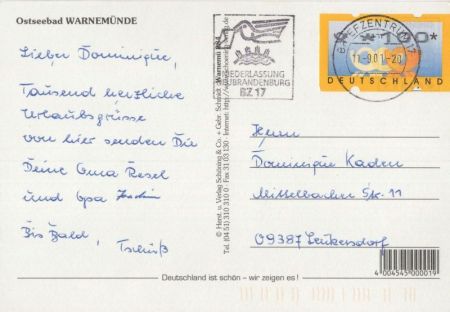 Ostseebad WARNEMÜNDE
Lieber Dominique,
Tausend herzliche
Urlaubsgrüsse
von hier senden Dir
Deine Oma Resel
und Opa
Bis Bald,
Tschüß
© Herst. u. Verlag Schöning & Co. + Gebr. Schmidt
Tel. (04 51) 310 310 0 · Fax 31 03 130 · Internet:
BRIEFZENTRUM 17
11.-9.01.-20
NIEDERLASSUNG
NEUBRANDENBURG
BZ 17
*100*
DEUTSCHLAND
Herrn
Dominique Kaden
Mittelbacher Str. 11
09387 Leukersdorf
4 004545 000019
Deutschland ist schön – wir zeigen es!